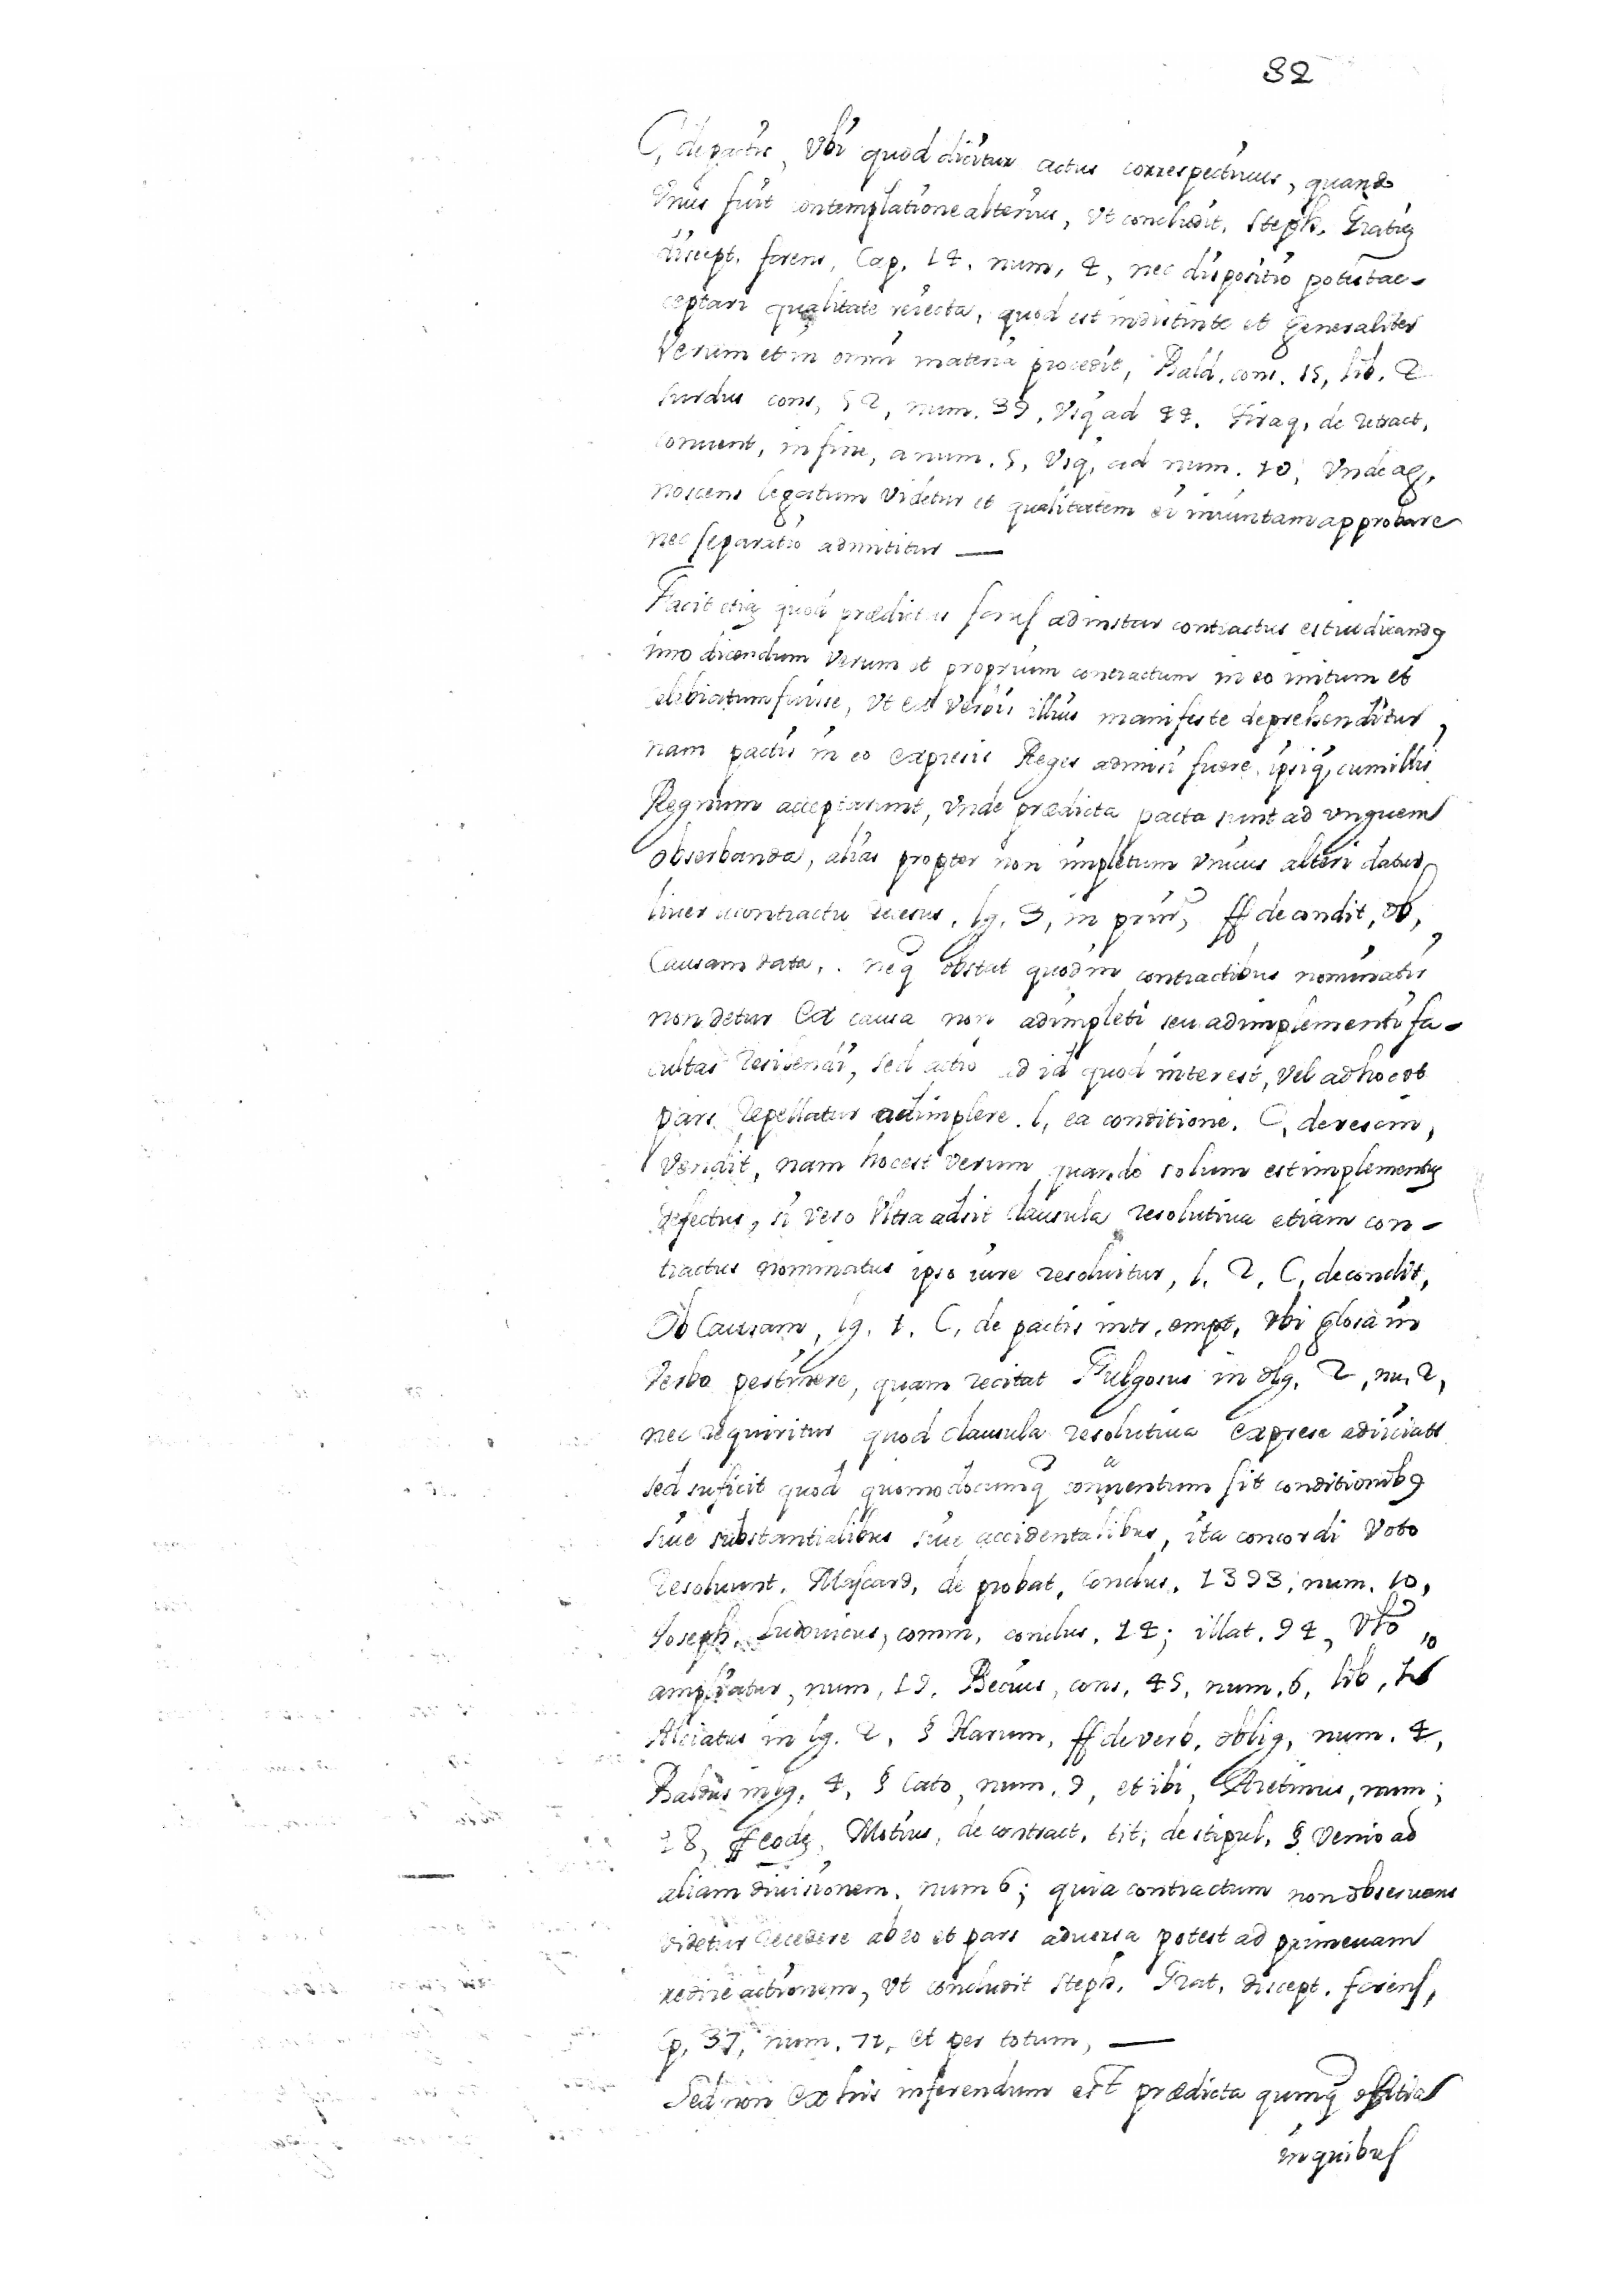 32
C, de pactis, Vbi quod dicitur actus correspectiuus, quando
Vnus fuit contemplatione alterius, Vt concludit, Steph. Gratiꝫ
discept. forens, Cap. 14. num, 4, nec dispositio potest ac-
ceptari qualitate reiecta, quod est indistinte et generaliter
Verum et in omni materia procedit, Bald. cons. 15, lib. 2
Surdus cons, 52, num. 39, Vsq ad 44. Tiraq, de retract,
conuent, in fine, a num. 5, Vsq, ad num. 10, Vnde ag,
noscens legatum Videtur et qualitatem ei iniuntam approbare
nec separatio admititur —
Facit etiꝫ quod prædictus forus ad instar contractus est iudicandꝰ
imo dicendum Verum et proprium contractum in eo initum et
celebratum fuisse, Vt ex Verbis illius manifeste deprehenditur,
nam pactis in eo expresis Reges admisi fuere, ipsiq, cum illis
Regnum acceptarunt, Vnde prædicta pacta sunt ad vnguem
obserbanda, alias propter non impletum Vnius alteri datur
liuer a contractu recesus, lg. 3, in prin, ff de condit, ob,
Causam data, . neq obstat quod in contractibus nominatis
non detur Ex causa non adimpleti seu adimplementi fa-
cultas resiliendi, sed actio ad id quod interest, Vel ad hoc ut
pars repellatur adimplere. l, ea conditione. C, de rescin,
Vendit, nam hoc est Verum quando solum est implementꝫ
defectus, si Vero Vltra adsit clausula resolutiua etiam con-
tractus nominatus ipso iure resoluitur, l. 2, C, de condit,
Ob Causam, lg. 1. C, de pactis intr. empt, Vbi glosa in
Verbo pertinere, quam recitat Fulgosius in dlg. 2, nu. 2,
nec requiritur quod clausula resolutiua exprese adiiciatr
sed suficit quod quomodocumq conuentum sit conditionibꝰ
siue substantialibus siue accidentalibus, ita concordi Voto
resoluunt. Mascard, de probat, conclus. 1393, num. 10,
Joseph. Ludouicus, comm, conclus. 14; illat. 94, Vbo
ampliatur, num, 19. Becius, cons, 45, num. 6, lib, 1
Alciatus in lg. 2, § Harum, ff de verb, oblig, num. 4,
Baldus in lg, 4, § Cato, num. 9, et ibi, Aretinus, num;
28, ff eodꝫ, Motius, de contract, tit; de stipul, § Venio ad
aliam diuisionem, num 6; quia contractum non obseruans
videtur recedere ab eo et pars aduersa potest ad primeuam
redire actionem, Vt concludit Steph. Grat, discept. forens,
cp, 37, num. 72, et per totum, —
Sed non Ex his inferendum est prædicta quinq offitia
in quibus